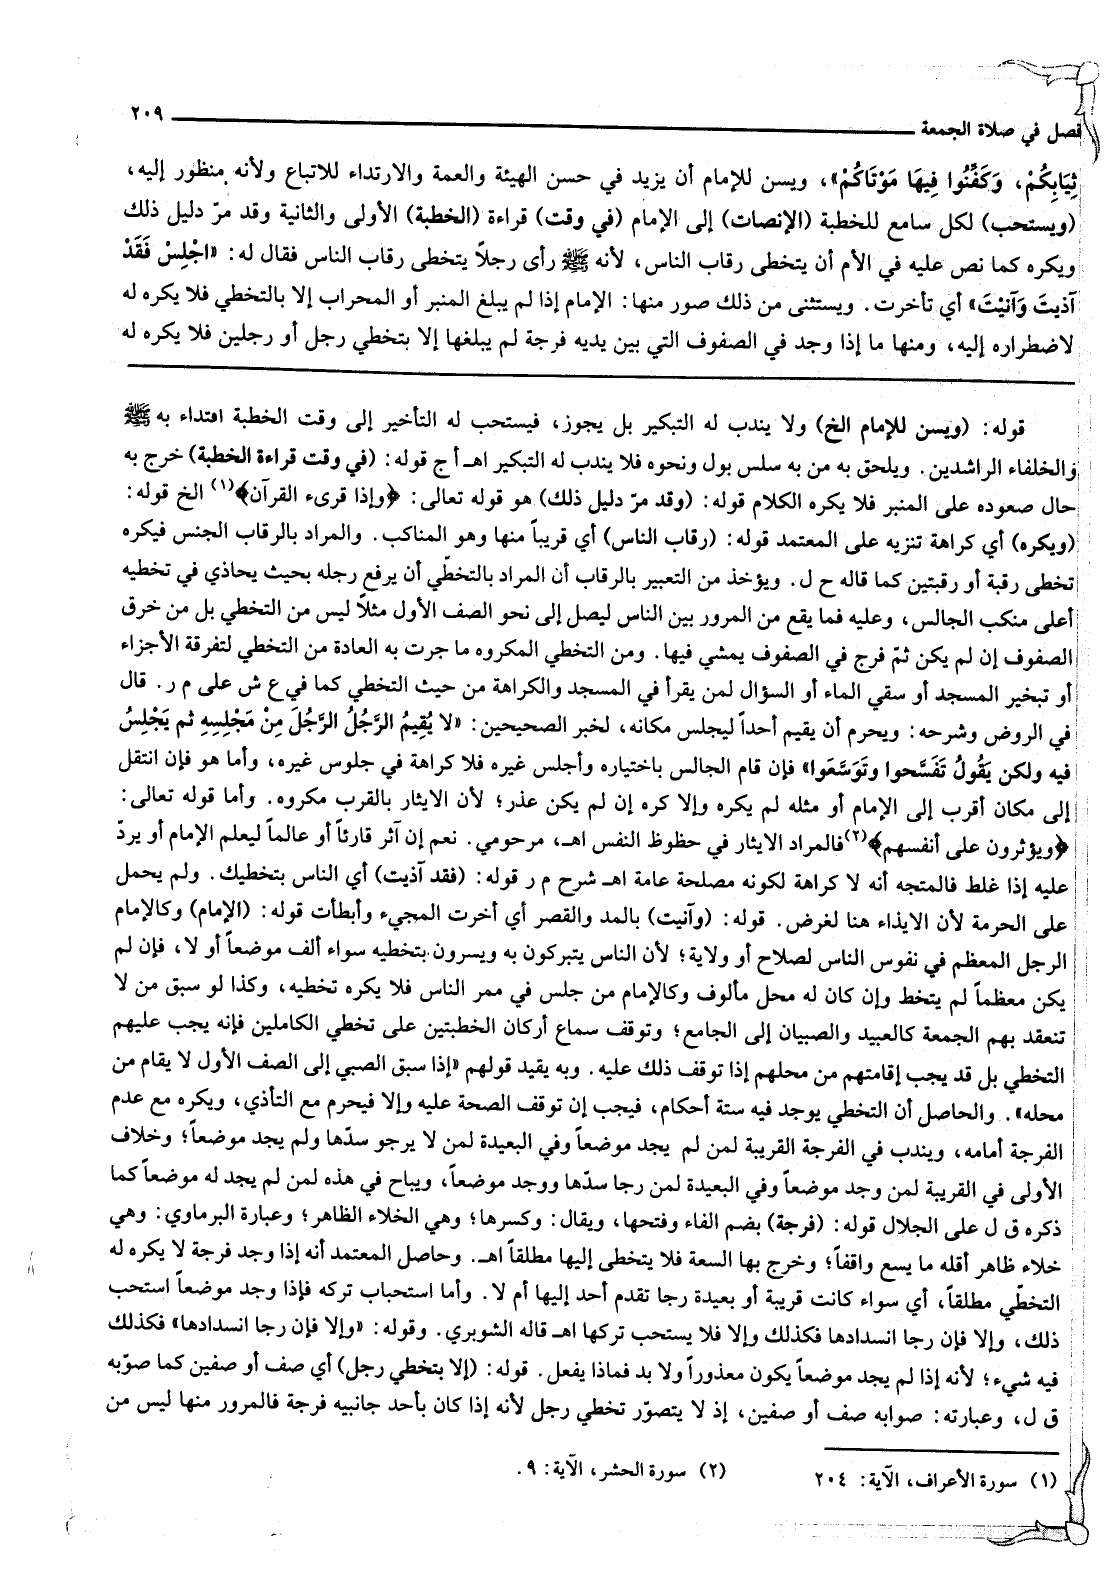 فصل في صلاة الجمعة ٢٠٩
ثِيَابِكُمْ، وَكَفِّنُوا فِيهَا مَوْتَاكُمْ»، ويسن للإمام أن يزيد في حسن الهيئة والعمة والارتداء للاتباع ولأنه منظور إليه،
(ويستحب) لكل سامع للخطبة (الإنصات) إلى الإمام (في وقت) قراءة (الخطبة) الأولى والثانية وقد مرّ دليل ذلك
ويكره كما نص عليه في الأم أن يتخطى رقاب الناس، لأنه ﷺ رأى رجلاً يتخطى رقاب الناس فقال له: «اجْلِسْ فَقَدْ
آذيتَ وَآنَيْتَ» أي تأخرت. ويستثنى من ذلك صور منها: الإمام إذا لم يبلغ المنبر أو المحراب إلا بالتخطي فلا يكره له
لاضطراره إليه، ومنها ما إذا وجد في الصفوف التي بين يديه فرجة لم يبلغها إلا بتخطي رجل أو رجلين فلا يكره له
قوله: (ويسن للإمام الخ) ولا يندب له التبكير بل يجوز، فيستحب له التأخير إلى وقت الخطبة اقتداء به ﷺ
والخلفاء الراشدين. ويلحق به من به سلس بول ونحوه فلا يندب له التبكير اهـ أ ج قوله: (في وقت قراءة الخطبة) خرج به
حال صعوده على المنبر فلا يكره الكلام قوله: (وقد مرّ دليل ذلك) هو قوله تعالى: ﴿وإذا قرىء القرآن﴾(١) الخ قوله:
(ويكره) أي كراهة تنزيه على المعتمد قوله: (رقاب الناس) أي قريباً منها وهو المناكب. والمراد بالرقاب الجنس فيكره
تخطى رقبة أو رقبتين كما قاله ح ل. ويؤخذ من التعبير بالرقاب أن المراد بالتخطّي أن يرفع رجله بحيث يحاذي في تخطيه
أعلى منكب الجالس، وعليه فما يقع من المرور بين الناس ليصل إلى نحو الصف الأول مثلاً ليس من التخطي بل من خرق
الصفوف إن لم يكن ثمّ فرج في الصفوف يمشي فيها. ومن التخطي المكروه ما جرت به العادة من التخطي لتفرقة الأجزاء
أو تبخير المسجد أو سقي الماء أو السؤال لمن يقرأ في المسجد والكراهة من حيث التخطي كما في ع ش على م ر. قال
في الروض وشرحه: ويحرم أن يقيم أحداً ليجلس مكانه، لخبر الصحيحين: «لا يُقِيمُ الرَّجُلُ الرَّجُلَ مِنْ مَجْلِسِهِ ثم يَجْلِسُ
فيه ولكن يَقُولُ تَفَسَّحوا وتَوَسَّعَوا» فإن قام الجالس باختياره وأجلس غيره فلا كراهة في جلوس غيره، وأما هو فإن انتقل
إلى مكان أقرب إلى الإمام أو مثله لم يكره وإلا كره إن لم يكن عذر؛ لأن الايثار بالقرب مكروه. وأما قوله تعالى:
﴿ويؤثرون على أنفسهم﴾(٢) فالمراد الايثار في حظوظ النفس اهـ، مرحومي. نعم إن آثر قارئاً أو عالماً ليعلم الإمام أو يردّ
عليه إذا غلط فالمتجه أنه لا كراهة لكونه مصلحة عامة اهـ شرح م ر قوله: (فقد آذيت) أي الناس بتخطيك. ولم يحمل
على الحرمة لأن الايذاء هنا لغرض. قوله: (وآنيت) بالمد والقصر أي أخرت المجيء وأبطأت قوله: (الإمام) وكالإمام
الرجل المعظم في نفوس الناس لصلاح أو ولاية؛ لأن الناس يتبركون به ويسرون بتخطيه سواء ألف موضعاً أو لا، فإن لم
يكن معظماً لم يتخط وإن كان له محل مألوف وكالإمام من جلس في ممر الناس فلا يكره تخطيه، وكذا لو سبق من لا
تنعقد بهم الجمعة كالعبيد والصبيان إلى الجامع؛ وتوقف سماع أركان الخطبتين على تخطي الكاملين فإنه يجب عليهم
التخطي بل قد يجب إقامتهم من محلهم إذا توقف ذلك عليه. وبه يقيد قولهم «إذا سبق الصبي إلى الصف الأول لا يقام من
محله». والحاصل أن التخطي يوجد فيه ستة أحكام، فيجب إن توقف الصحة عليه وإلا فيحرم مع التأذي، ويكره مع عدم
الفرجة أمامه، ويندب في الفرجة القريبة لمن لم يجد موضعاً وفي البعيدة لمن لا يرجو سدّها ولم يجد موضعاً؛ وخلاف
الأولى في القريبة لمن وجد موضعاً وفي البعيدة لمن رجا سدّها ووجد موضعاً، ويباح في هذه لمن لم يجد له موضعاً كما
ذكره ق ل على الجلال قوله: (فرجة) بضم الفاء وفتحها، ويقال: وكسرها؛ وهي الخلاء الظاهر؛ وعبارة البرماوي: وهي
خلاء ظاهر أقله ما يسع واقفاً؛ وخرج بها السعة فلا يتخطى إليها مطلقاً اهـ. وحاصل المعتمد أنه إذا وجد فرجة لا يكره له
التخطّي مطلقاً، أي سواء كانت قريبة أو بعيدة رجا تقدم أحد إليها أم لا. وأما استحباب تركه فإذا وجد موضعاً استحب
ذلك، وإلا فإن رجا انسدادها فكذلك وإلا فلا يستحب تركها اهـ قاله الشوبري. وقوله: «وإلا فإن رجا انسدادها» فكذلك
فيه شيء؛ لأنه إذا لم يجد موضعاً يكون معذوراً ولا بد فماذا يفعل. قوله: (إلا بتخطي رجل) أي صف أو صفين كما صوّبه
ق ل، وعبارته: صوابه صف أو صفين، إذ لا يتصوّر تخطي رجل لأنه إذا كان بأحد جانبيه فرجة فالمرور منها ليس من
(١) سورة الأعراف، الآية: ٢٠٤ (٢) سورة الحشر، الآية: ٩.